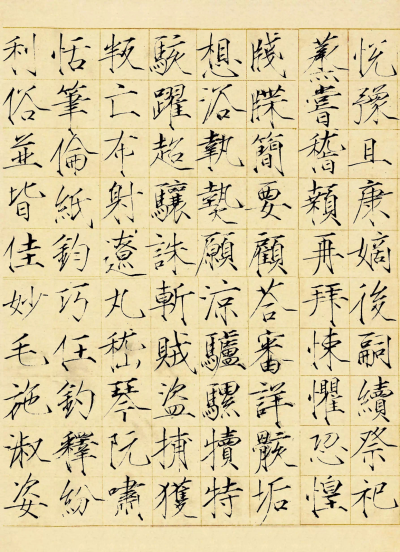 悅豫且康嫡後嗣續祭祀
蒸嘗稽顙再拜悚懼恐惶
牋牒簡要顧荅審詳骸垢
想浴執熱願涼驢騾犢特
駭躍超驤誅斬賊盜捕獲
叛亡布射遼丸嵇琴阮嘯
恬筆倫紙鈞巧任釣釋紛
利俗並皆佳妙毛施淑姿